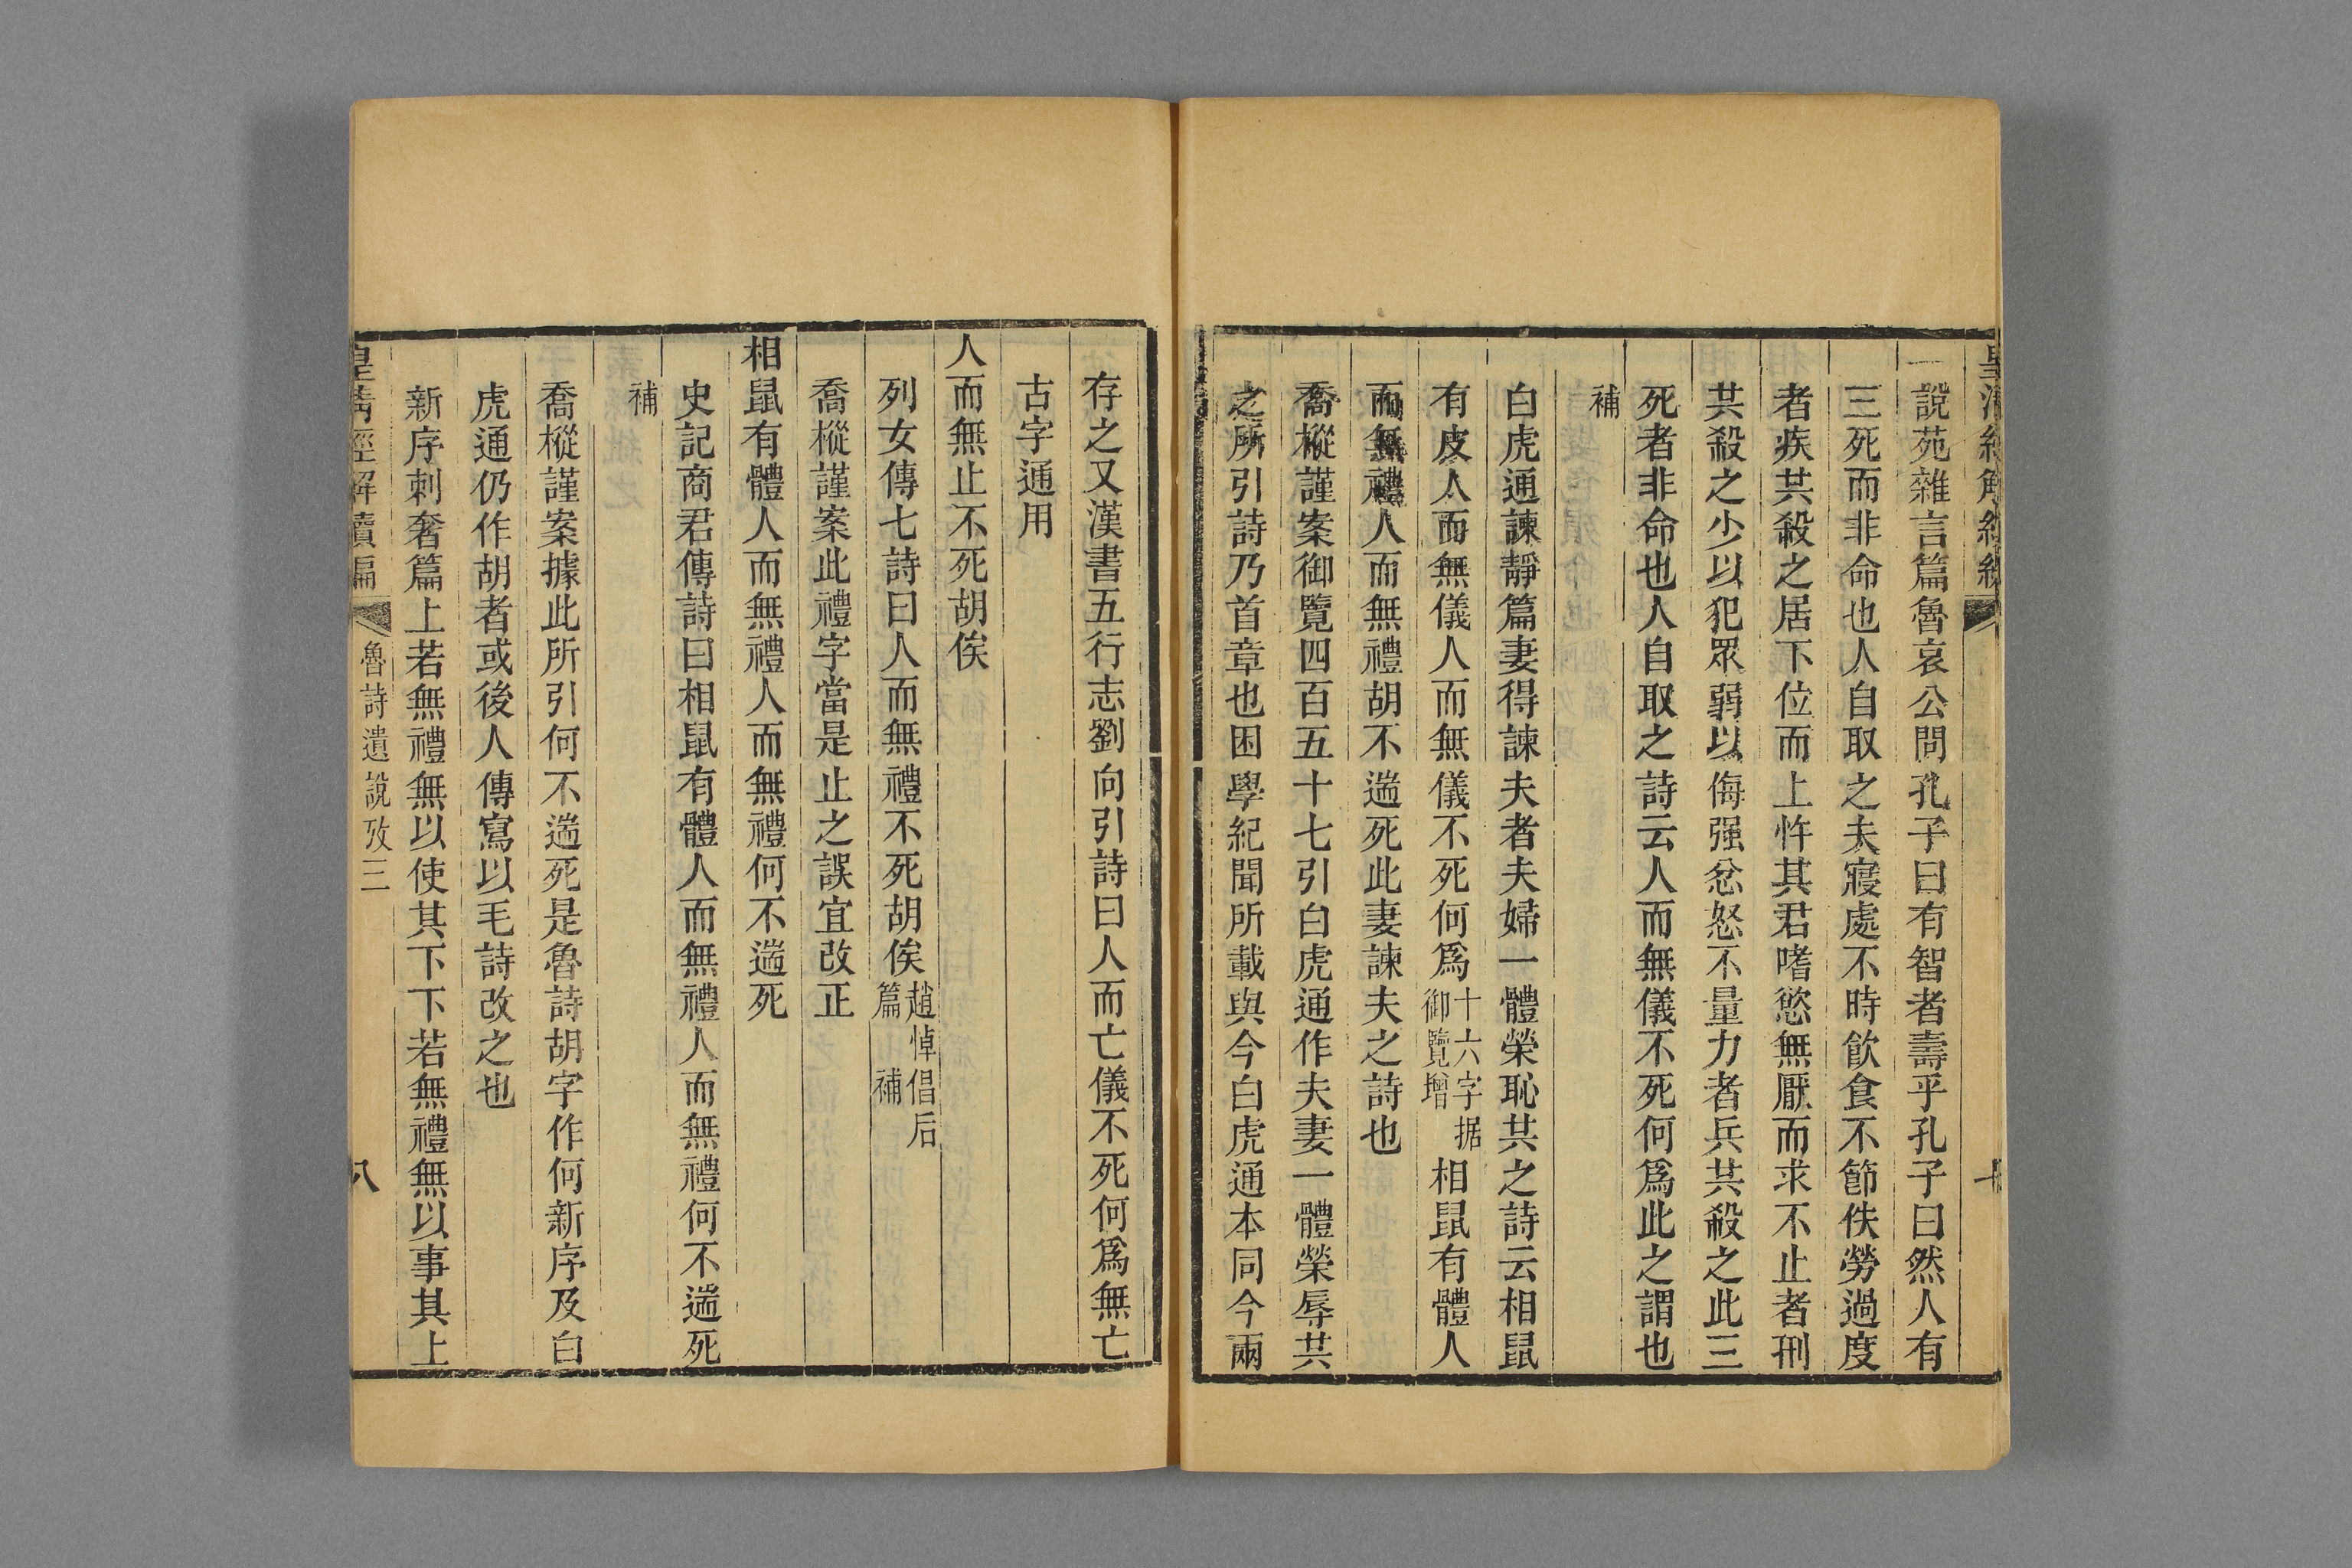 說苑雜言篇魯哀公問孔子曰有智者壽乎孔子曰然人有
三死而非命也人自取之夫寢處不時飲食不節佚勞過度
者疾共殺之居下位而上忤其君嗜慾無厭而求不止者刑
共殺之少以犯眾弱以侮强忿怒不量力者兵共殺之此三
死者非命也人自取之詩云人而無儀不死何爲此之謂也
補
白虎通諫靜篇妻得諫夫者夫婦一體榮恥共之詩云相鼠
有皮人而無儀人而無儀不死何爲十六字据御覽增相鼠有體人
而無禮人而無禮胡不遄死此妻諫夫之詩也
喬樅謹案御覽四百五十七引白虎通作夫妻一體榮辱共
之所引詩乃首章也困學紀聞所載與今白虎通本同今兩
存之又漢書五行志劉向引詩曰人而亡儀不死何爲無亡
古字通用
人而無止不死胡俟
列女傳七詩曰人而無禮不死胡俟趙悼倡后篇 補
喬樅謹案此禮字當是止之誤宜改正
相鼠有體人而無禮人而無禮何不遄死
史記商君傳詩曰相鼠有體人而無禮人而無禮何不遄死
補
喬樅謹案據此所引何不遄死是魯詩胡字作何新序及白
虎通仍作胡者或後人傳寫以毛詩改之也
新序刺奢篇上若無禮無以使其下下若無禮無以事其上
皇清經解續編 魯詩遺說攷三 八